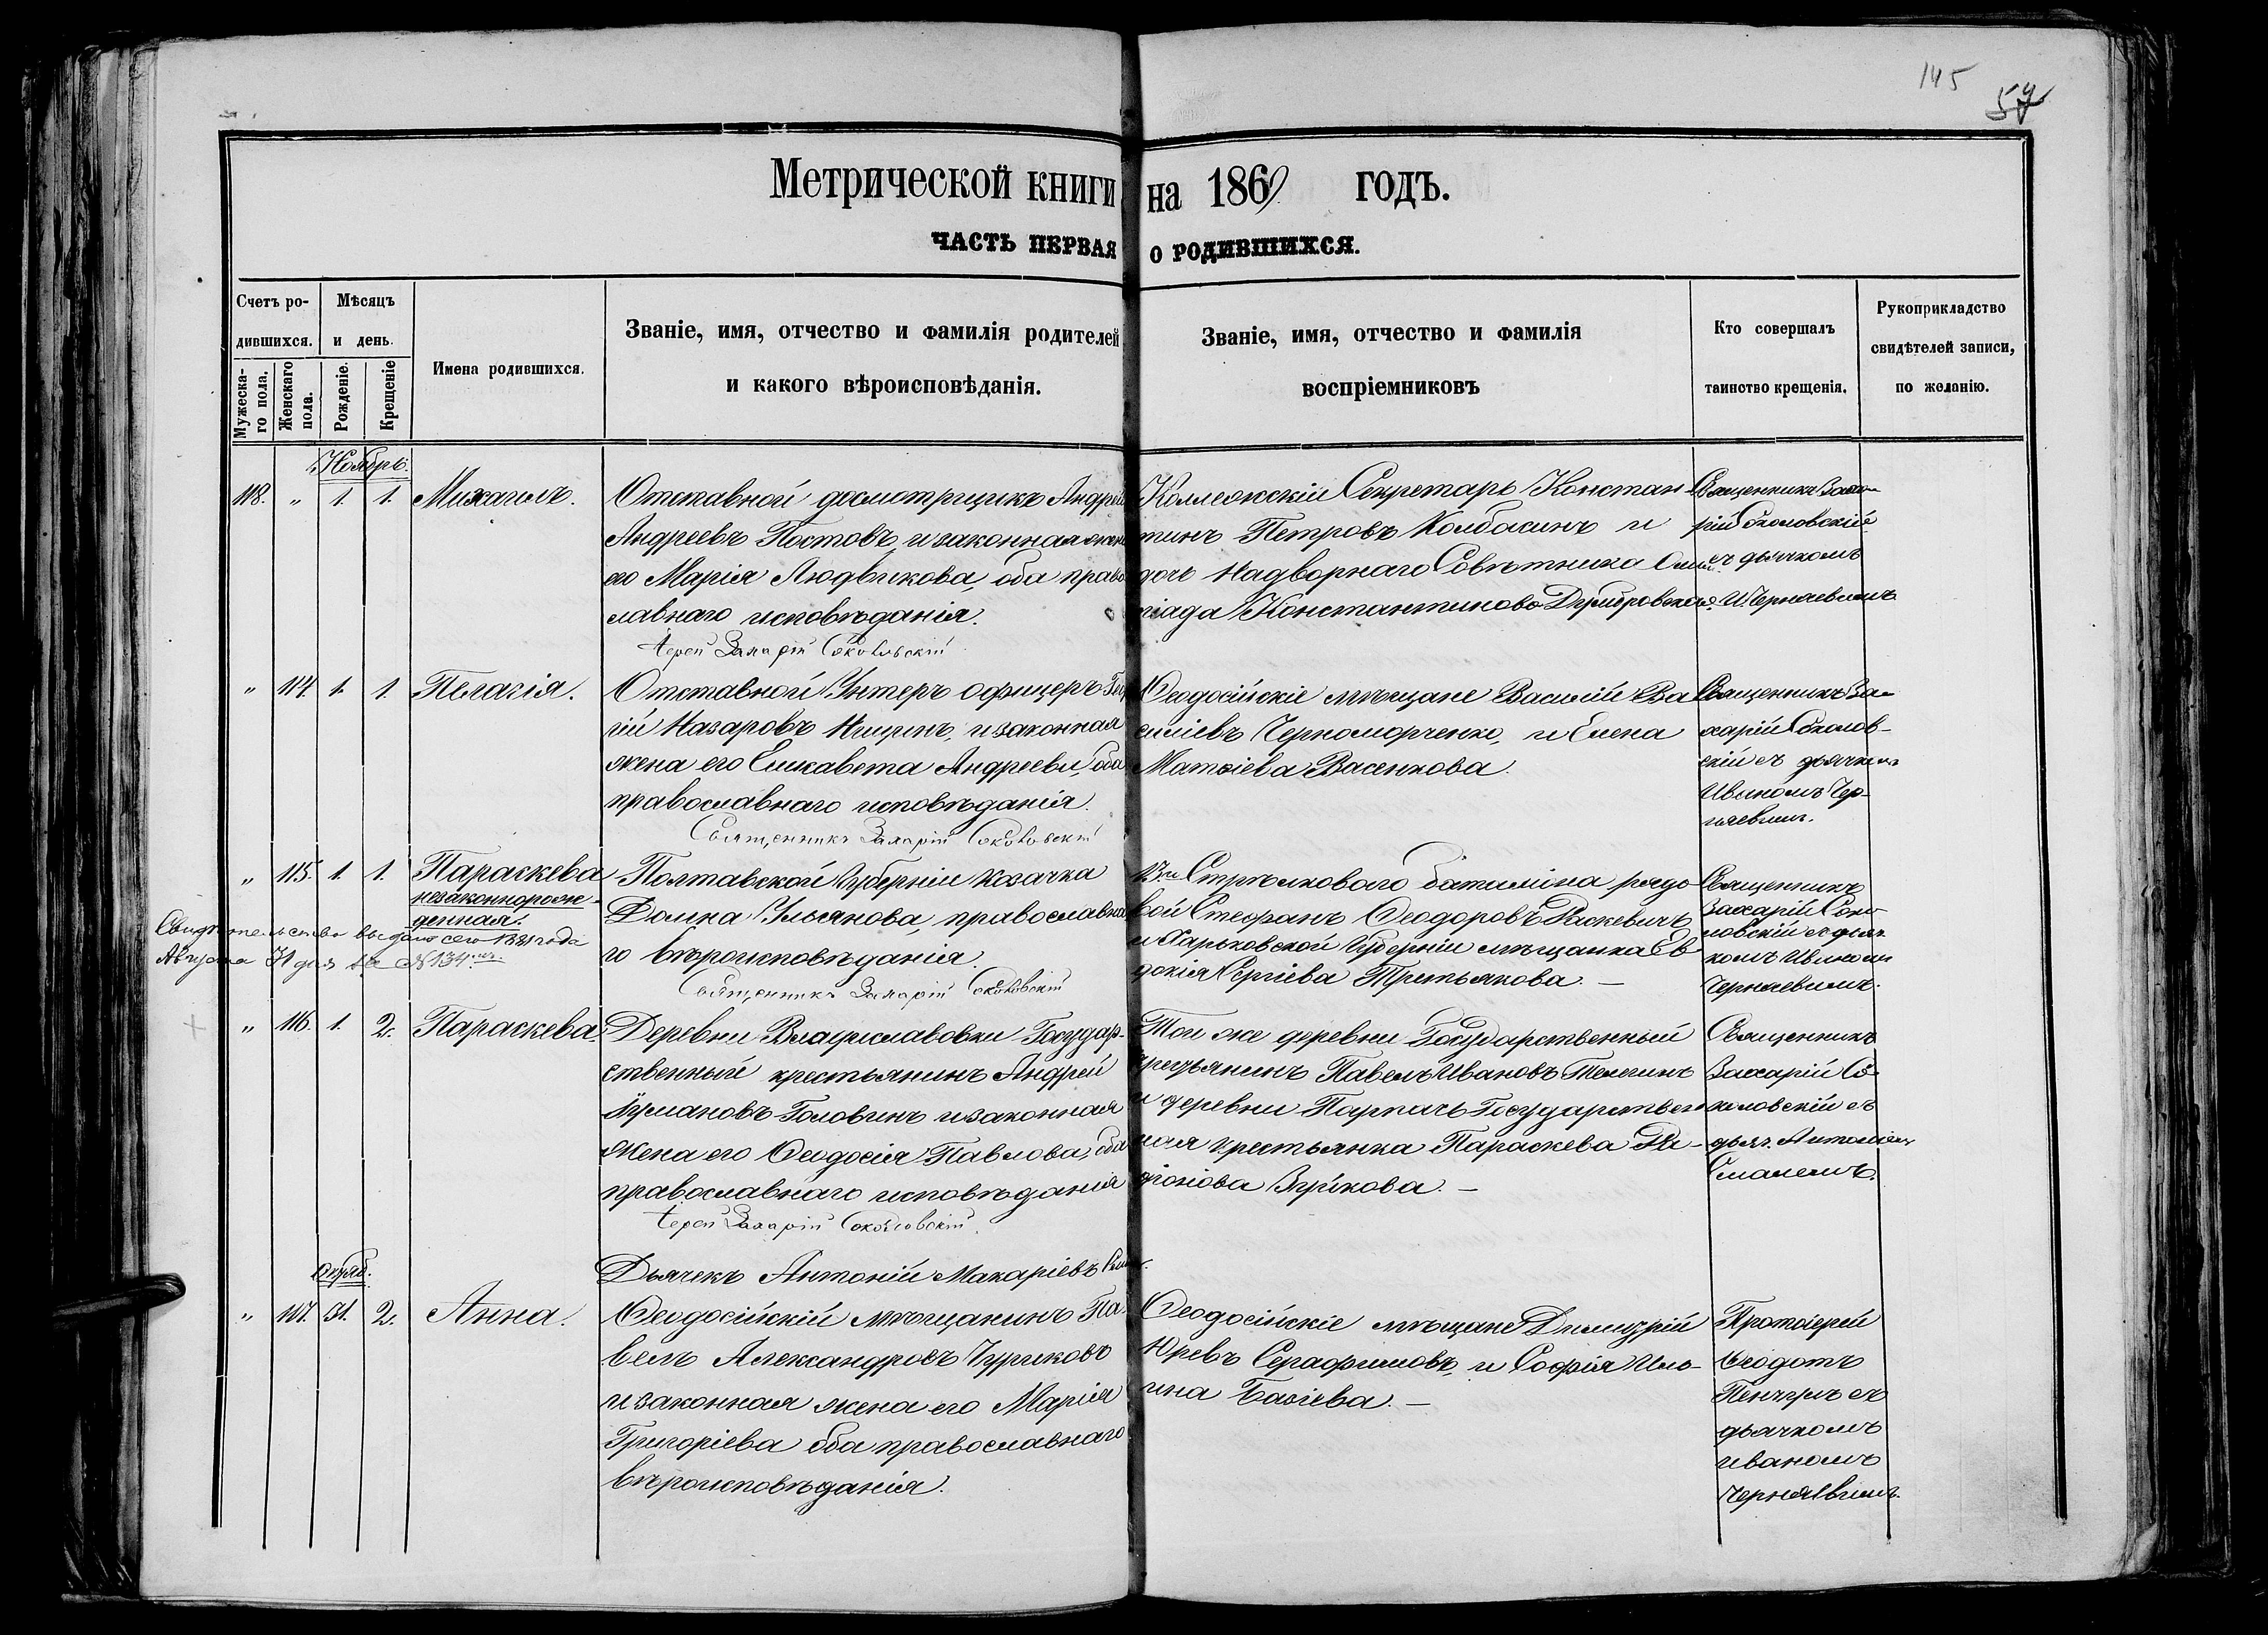 145
57
Метрической книги на 1869 годъ.
ЧАСТЬ ПЕРВАЯ О РОДИВШИХСЯ.
Счетъ ро-
дившихся.
Мужеска-
го пола.
Женскаго
пола.
Мѣсяцъ
и день.
Рожденіе.
Крещеніе
Имена родившихся.
Званіе, имя, отчество и фамилія родителей
и какого вѣроисповѣданія.
Званіе, имя, отчество и фамилія
воспріемниковъ
Кто совершалъ
таинство крещенія.
Рукоприкладство
свидѣтелей записи,
по желанію.
Ноябрь.
118. " 1. 1. Михаилъ.
Отставной досмотрщикъ Андрей
Андреевъ Постовъ, и законная жена
его Марія Людвикова, оба право
славнаго исповѣданія.
Іерей Захарій Соколовскій
Коллежскій Секретарь Констан
тинъ Петровъ Колбасинъ и
дочь Надворнаго Совѣтника
Константинова Думбровская.
Священникъ Заха-
рій Соколовскій
съ дьячкомъ
И. Черняевымъ
" 114. 1. 1. Пелагія.
Отставной Унтеръ офицеръ
гій Назаровъ и законная
жена его Елисавета Андреева, оба
православнаго исповѣданія.
Священникъ Захарій Соколовскій
Ѳеодосійскіе мѣщане Василій Ва
силіевъ Черноморченко, и Елена
Матѳіева Васенкова.
Священникъ За-
харій Соколов-
скій съ дьячкомъ
Иваномъ Чер-
няевымъ.
" 115. 1. 1. Параскева
незаконнорож-
денная.
Свидѣтельство выдано сего 1881 года
Августа 31 дня за № 134.
Полтавской Губерніи козачка
Домна Ульянова, православна
го вѣроисповѣданія.
Священникъ Захарій Соколовскій
13го Стрѣлковаго баталіона рядо
вой Стефанъ Ѳеодоровъ Раскевичъ
и Харьковской Губерніи мѣщанка Ев
докія Сергіева Третьякова. —
Священникъ
Захарій Соко
ловскій съ дьяч
комъ Иваномъ
Черняевымъ.
" 116. 1. 2. Параскева.
Деревни Владиславовки Государ-
ственный крестьянинъ Андрей
Головинъ и законная
жена его Ѳеодосія Павлова, оба
православнаго исповѣданія
Іерей Захарій Соколовскій.
Дьячекъ Антоній Макаріевъ
Той же деревни Государственный
крестьянинъ Павелъ Ивановъ Телегинъ
и деревни Парпачъ Государствен
ная крестьянка Параскева Ра-
діонова —
Священникъ
Захарій Со
коловскій съ
дьяч. Антоніемъ
Октяб.
" 117. 31. 2. Анна.
Ѳеодосійскій мѣщанинъ Па
велъ Александровъ Чуриковъ
и законная жена его Марія
Григоріева оба православнаго
вѣроисповѣданія.
Ѳеодосійскіе мѣщане Димитрій
Юревъ Серафимовъ, и Софія Иль-
ина Базіева. —
Протоіерей
Ѳеодотъ
Пенчулъ съ
дьячкомъ
Иваномъ
Черняевымъ.